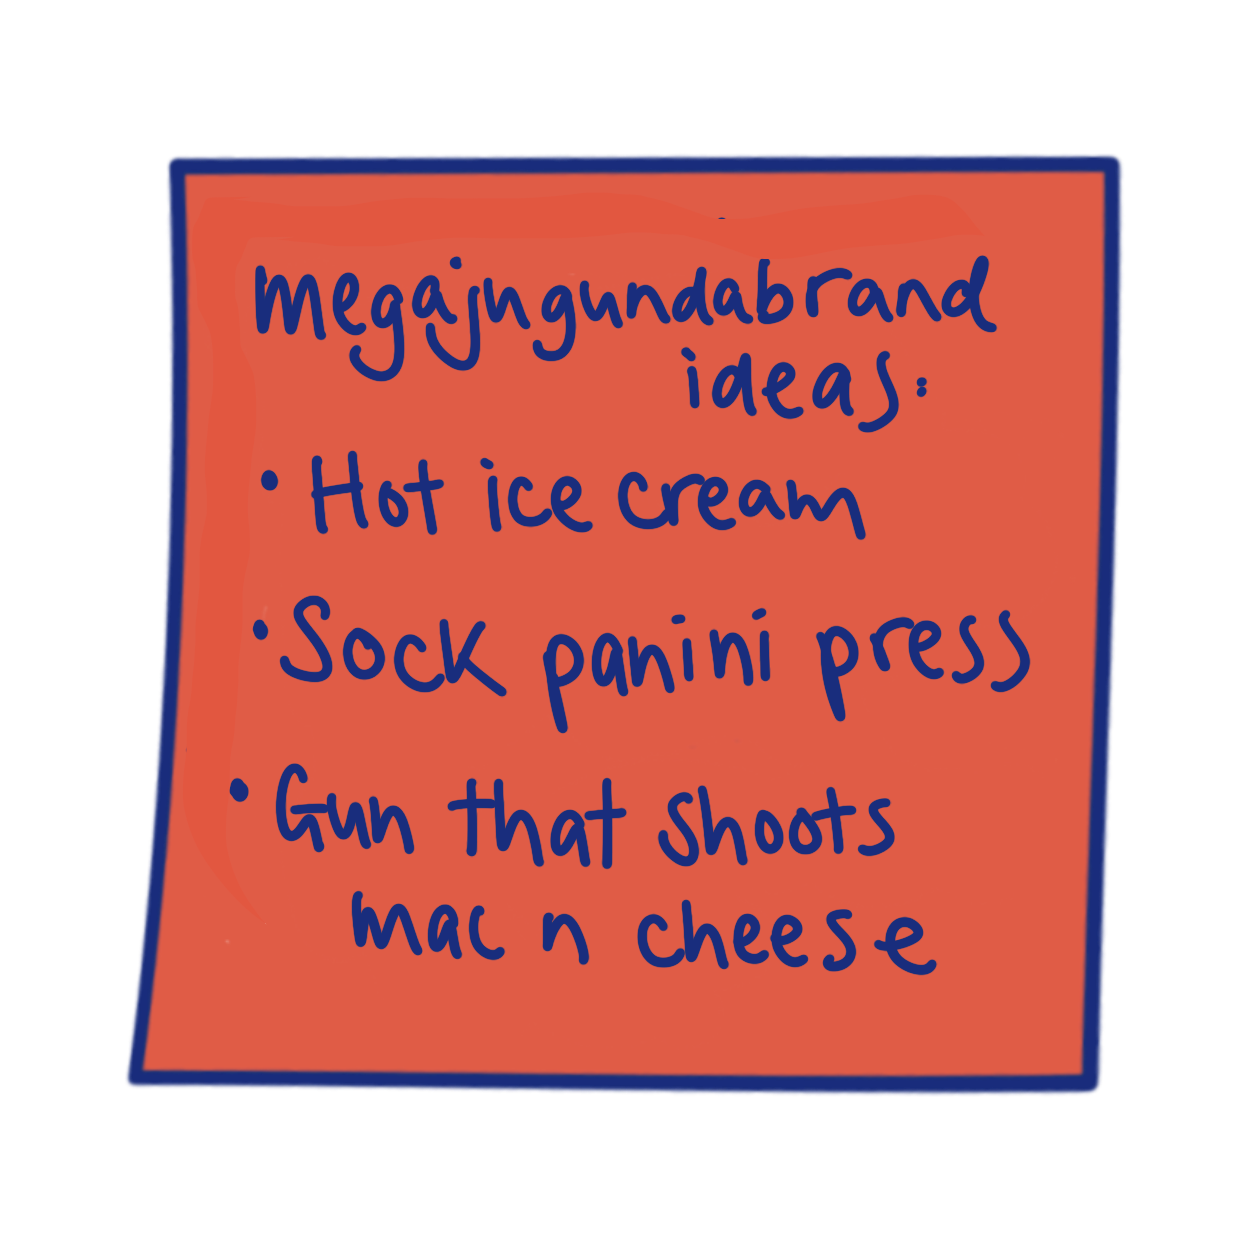 megajngundabrand
ideas:
• Hot ice cream
• Sock panini press
• Gun that shoots
mac n cheese